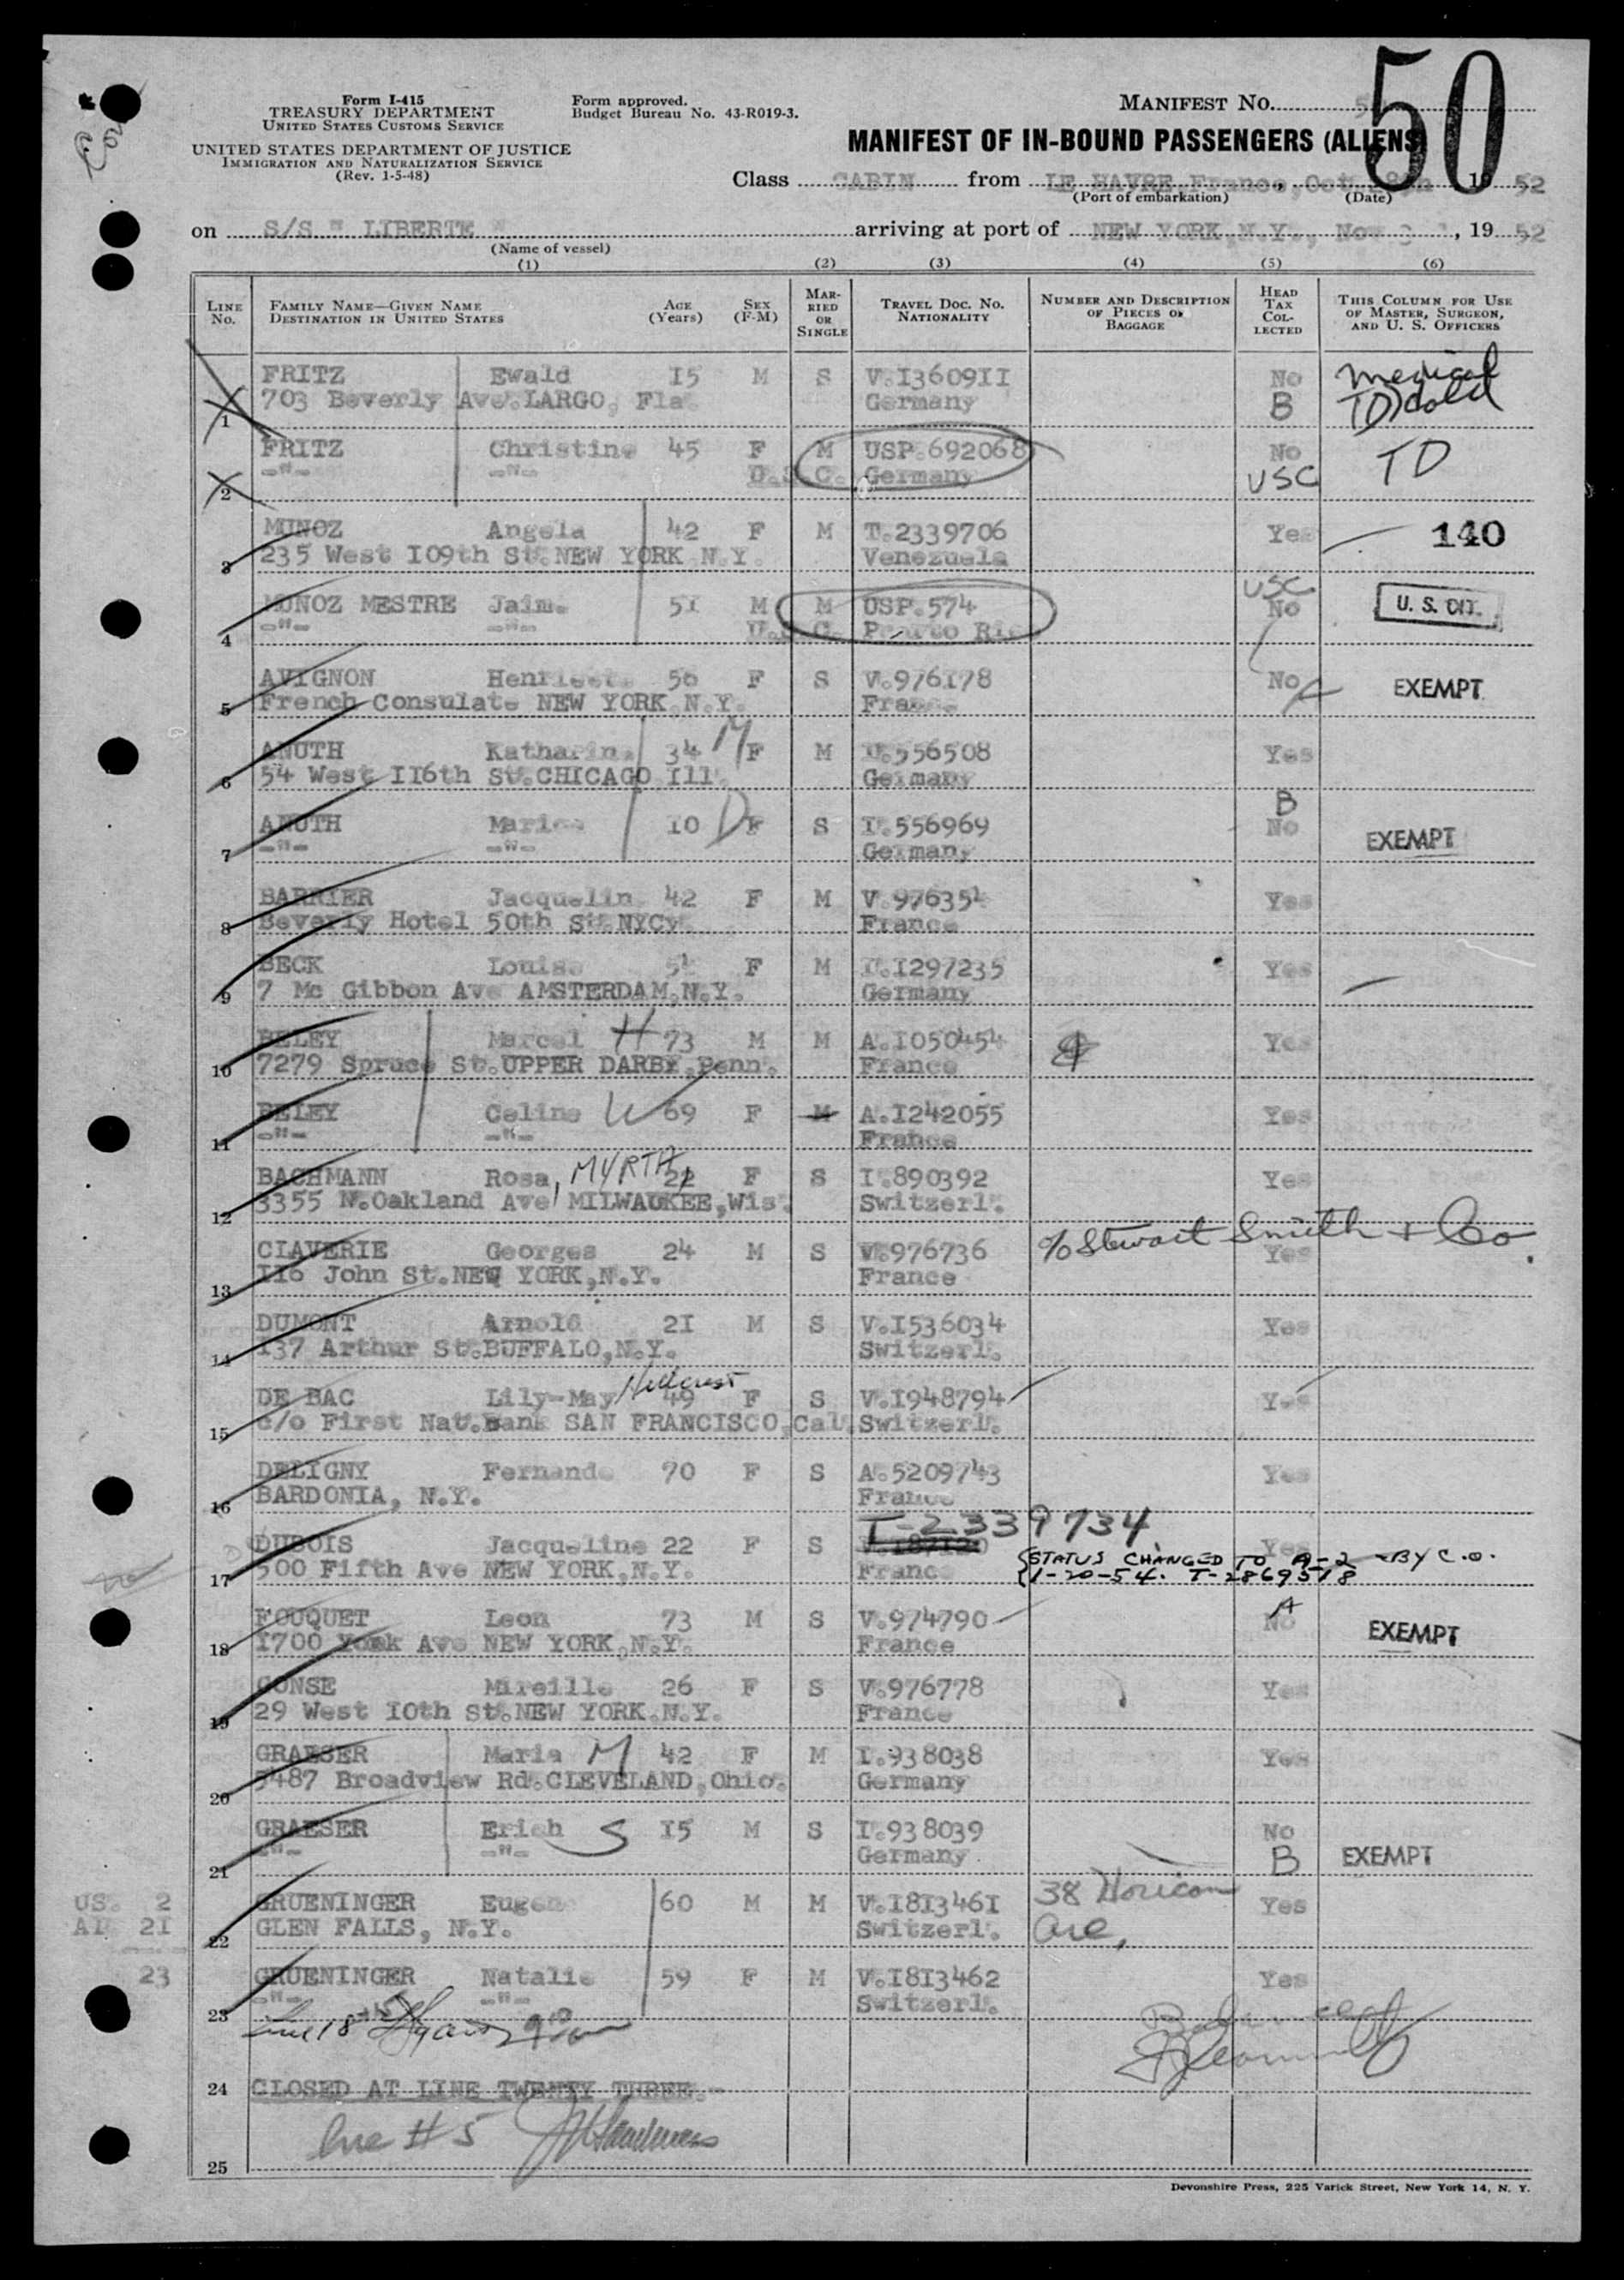 50
Form I-415
TREASURY DEPARTMENT
UNITED STATES CUSTOMS SERVICE
UNITED STATES DEPARTMENT OF JUSTICE
IMMIGRATION AND NATURALIZATION SERVICE
(Rev. 1-5-48)
Form approved.
Budget Bureau No. 43-R019-3.
MANIFEST NO.
MANIFEST OF IN-BOUND PASSENGERS (ALIENS)
Class CABIN from LE HAVRE, France, Oct. 1952
(Port of embarkation) (Date)
on S/S " LIBERTE " arriving at port of NEW YORK, N.Y., Nov 1952
(Name of vessel)
(1) (2) (3) (4) (5) (6)
LINE No. FAMILY NAME—GIVEN NAME DESTINATION IN UNITED STATES AGE (Years) SEX (F-M) MARRIED OR SINGLE TRAVEL DOC. NO. NATIONALITY NUMBER AND DESCRIPTION OF PIECES OF BAGGAGE HEAD TAX COLLECTED THIS COLUMN FOR USE OF MASTER, SURGEON, AND U. S. OFFICERS
FRITZ Ewald 15 M S V.1360911 No medical
1 703 Beverly Ave. LARGO, Fla. Germany B TD
FRITZ Christine 45 F M USP.692068 No TD
2 -"- -"- U.S.C. Germany USC
MUNOZ Angela 42 F M T.2339706 Yes 140
3 235 West 109th St. NEW YORK N.Y. Venezuela
MUNOZ MESTRE Jaime 51 M M USP.574 USC No U. S. CIT.
4 -"- -"- U.S.C. Puerto Ric
AVIGNON Henriette 56 F S V.976178 No EXEMPT
5 French Consulate NEW YORK N.Y. France
ANUTH Katharina 34 M F M I.556508 Yes
6 54 West 116th St. CHICAGO Ill. Germany
ANUTH 10 D F S I.556969 B No EXEMPT
7 -"- -"- Germany
BARRIER Jacquelin 42 F M V.976354 Yes
8 Beverly Hotel 50th St. NYCy France
BECK Louise F M I.1297235 Yes
9 7 Mc Gibbon Ave AMSTERDAM, N.Y. Germany
BELEY Marcel H 73 M M A.1050454 Yes
10 7279 Spruce St. UPPER DARBY, Penn. France
BELEY Celine W 69 F M A.1242055 Yes
11 -"- -"- France
BACHMANN Rosa, MYRTA 22 F S I.890392 Yes
12 3355 N. Oakland Ave MILWAUKEE, Wis. Switzerl.
CLAVERIE Georges 24 M S V.976736 c/o Stewart Smith + Co. Yes
13 116 John St. NEW YORK, N.Y. France
DUMONT Arnold 21 M S V.1536034 Yes
14 137 Arthur St. BUFFALO, N.Y. Switzerl.
DE BAC Lily-May Hillcrest 49 F S V.1948794 Yes
15 c/o First Nat. Bank SAN FRANCISCO, Cal. Switzerl.
DELIGNY Fernande 70 F S A.5209743 Yes
16 BARDONIA, N.Y. France
T-2339734
DUBOIS Jacqueline 22 F S V.187120 Yes
17 500 Fifth Ave NEW YORK, N.Y. France
STATUS CHANGED TO A-2 - BY C.O.
1-20-54. T-2869518
FOUQUET Leon 73 M S V.974790 A No EXEMPT
18 1700 York Ave NEW YORK, N.Y. France
GONSE Mireille 26 F S V.976778 Yes
19 29 West 10th St. NEW YORK, N.Y. France
GRAESER Maria M 42 F M I.938038 Yes
20 5487 Broadview Rd. CLEVELAND, Ohio. Germany
GRAESER Erich S 15 M S I.938039 No EXEMPT
21 -"- -"- Germany B
GRUENINGER Eugene 60 M M V.1813461 38 Horicon Yes
22 GLEN FALLS, N.Y. Switzerl. Ave,
US. 2
Al. 21
23
GRUENINGER Natalie 59 F M V.1813462 Yes
23 -"- -"- Switzerl.
Line 18
24 CLOSED AT LINE TWENTY THREE.-
Line # 5
25
Devonshire Press, 225 Varick Street, New York 14, N. Y.